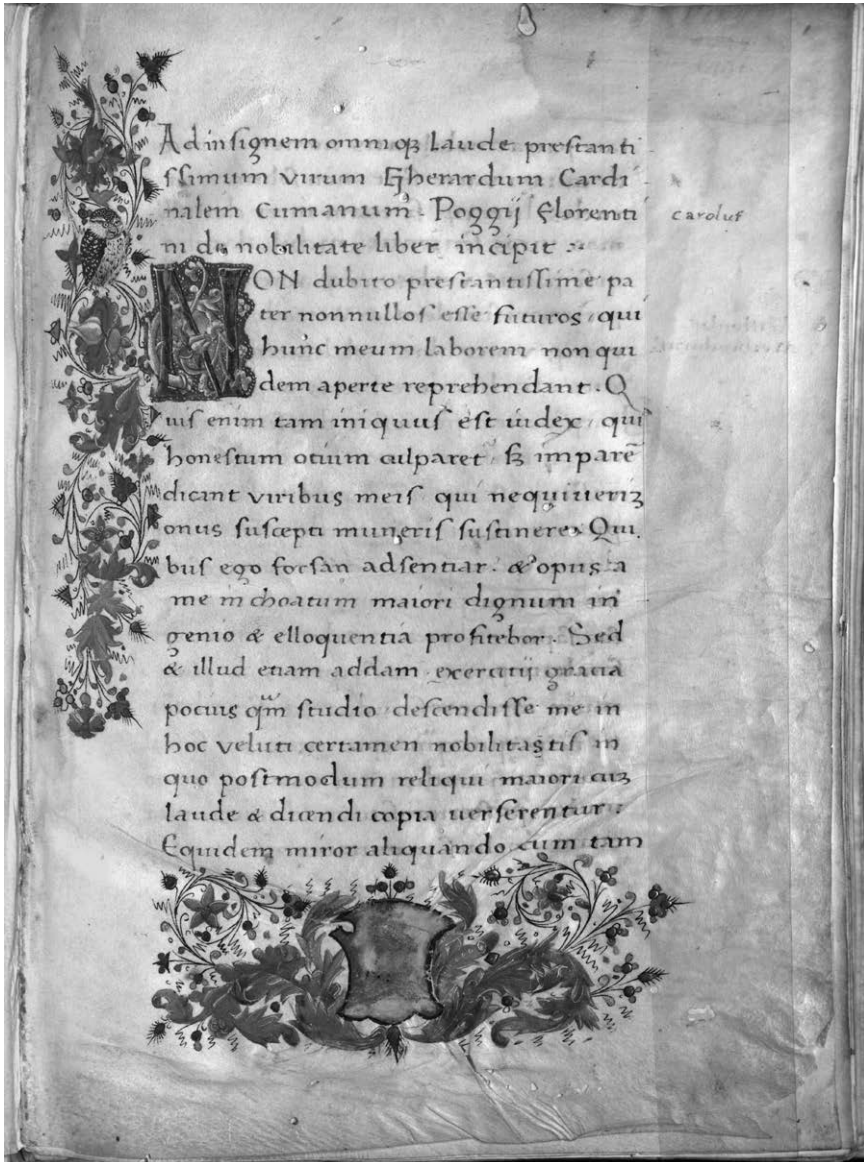 Ad insignem omniqꝫ laude prestanti
ssimum virum Gherardum Cardi
nalem Cumanum. Poggij Florenti
carolus
ni de nobilitate liber incipit :~
NON dubito prestantissime pa
ter nonnullos esse futuros, qui
hunc meum laborem non qui
dem aperte reprehendant. Q
uis enim tam iniquus est iudex, qui
honestum otium culparet, sꝫ imparē
dicant viribus meis qui nequiuerīꝫ
onus suscepti muneris sustinere. Qui
bus ego forsan adsentiar. & opus a
me inchoatum maiori dignum in
genio & elloquentia profitebor. Sed
& illud etiam addam exercitij gracia
pocius qm̄ studio descendisse me in
hoc veluti certamen nobilitastis in
quo postmodum reliqui maiori cuꝫ
laude & dicendi copia uerserentur:
Equidem miror aliquando cum tam